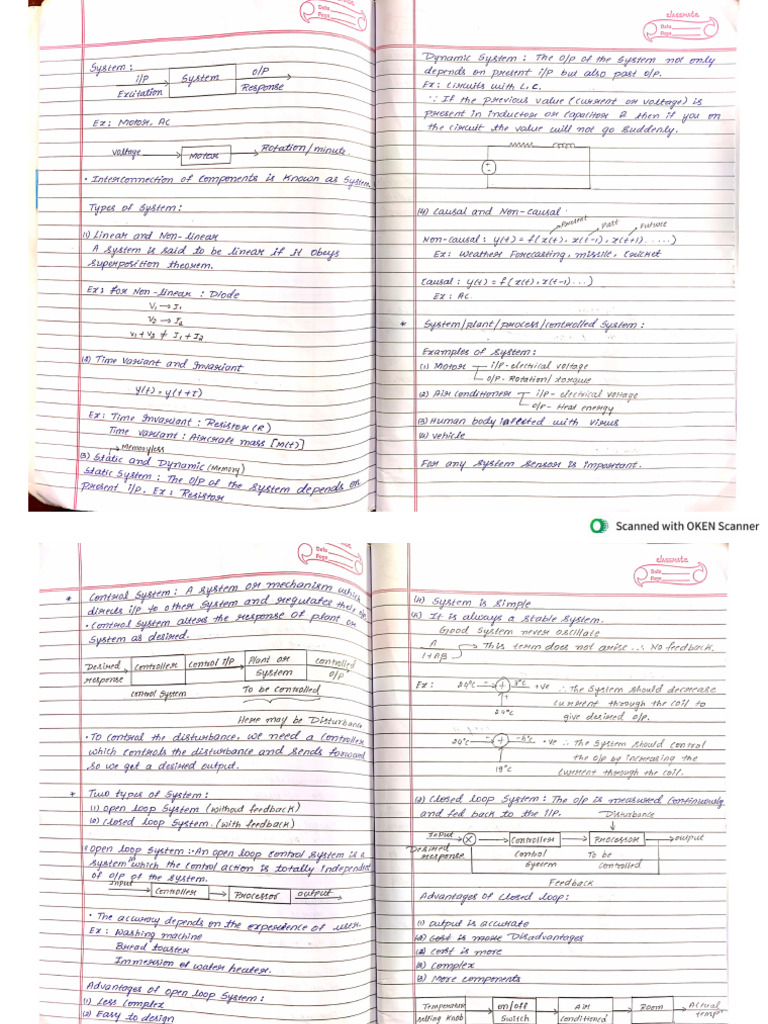 Date
Page
System :
i/P
System
O/P
Excitation
Response
Ex : Motor, AC
voltage
Motor
Rotation/minute
• Interconnection of Components is known as System.
Types of System :
(1) Linear and Non-linear
A system is said to be linear if it obeys
superposition theorem.
Ex : for Non-linear : Diode
V₁ → I₁
V₂ → I₂
V₁+V₂ ≠ I₁+I₂
(2) Time variant and Invariant
y(t) = y(t+T)
Ex : Time Invariant : Resistor (R)
Time variant : Aircrafte mass [M(t)]
Memoryless
(3) Static and Dynamic (Memory)
Static System : The O/P of the system depends on
present i/P. Ex : Resistor
classmate
Date
Page
Dynamic System : The O/p of the System not only
depends on present i/p but also past o/p.
Ex : Circuits with L, C.
∵ If the previous value (current or voltage) is
present in inductor or capacitor & then if you on
the circuit the value will not go suddenly.
(4) Causal and Non-Causal
Present
Past
Future
Non-causal : y(t) = f(x(t), x(t-1), x(t+1).....)
Ex : Weather Forecasting, missile, cricket
Causal : y(t) = f(x(t), x(t-1)...)
Ex : AC
* System/plant/process/controlled System :
Examples of System :
(1) Motor
i/p-electrical voltage
o/p-Rotation/torque
(2) Air conditioner
i/p-electrical voltage
o/p-Heat energy
(3) Human body infected with virus
(4) vehicle
For any system sensor is important.
Scanned with OKEN Scanner
Date
Page
* Control System : A system or mechanism which
directs i/p to other system and regulates their o/p.
• Control system alters the response of plant or
System as desired.
Desired
response
Controller
Control i/p
Plant or
System
controlled
o/p
control System
To be controlled
Here may be Disturbance
• To control the disturbance, we need a controller
which controls the disturbance and sends forward
so we get a desired output.
* Two types of System :
(1) open loop System (without feedback)
(2) closed loop System (with feedback)
1) Open loop System :- An open loop control system is a
system in which the control action is totally independent
of o/p of the system.
Input
Controller
Processor
output
• The accuracy depends on the experience of user.
Ex : Washing machine
Bread toaster
Immersion of water heater.
Advantages of open loop System :
(1) Less Complex
(2) Easy to design
classmate
Date
Page
System is simple
It is always a stable system.
Good System never oscillate
A
1+AB
This term does not arise ∴ No feedback.
Ex :
24°C
+ve
∴ The System should decrease
current through the coil to
give desired o/p.
24°C
-5°C
+ve
∴ The System should control
the o/p by increasing the
current through the coil.
19°C
(2) Closed loop System : The o/p is measured continuously
and fed back to the i/P.
Disturbance
Input
Desired
response
Controller
Processor
output
Control
System
To be
controlled
Feedback
Advantages of closed loop :
(1) output is accurate
Cost is more Disadvantages
Cost is more
Complex
(3) More components
Temperature
setting knob
on/off
Switch
Air
Conditioner
Room
Actual
temp